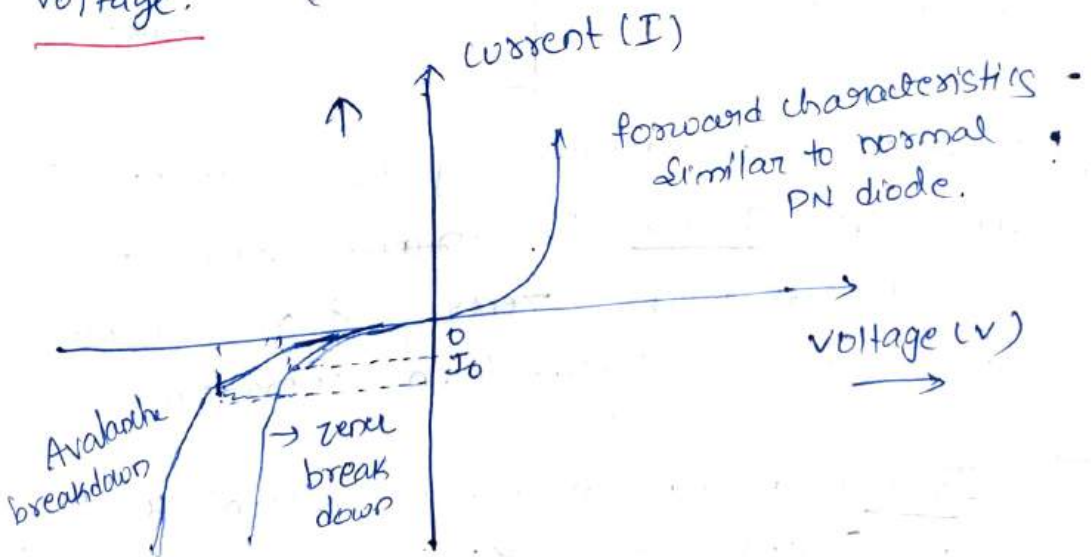 voltage.
current (I)
forward characteristics
similar to normal
PN diode.
0
I0
voltage (v)
Avalanche
breakdown
→ zener
break
down